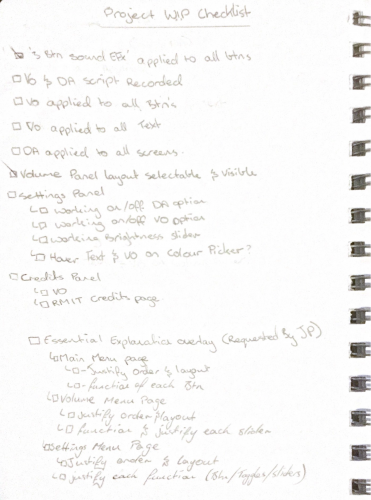 Project WIP Checklist
's Btn Sound EFx' applied to all btns
VO & DA Script Recorded
VO applied to all Btn's
VO applied to all Text
DA applied to all screens.
Volume Panel layout selectable & visible
Settings Panel
Working on/off DA option
working on/off VO option
working Brightness slider
Hover Text & VO on Colour Picker?
Credits Panel
VO
RMIT Credits page
Essential Explanation overlay (Requested By JP)
Main Menu page
Justify order & layout
function of each Btn
Volume Menu Page
Justify order & layout
function & justify each slider
Settings Menu Page
Justify order & layout
justify each function (Btn/Toggles/sliders)